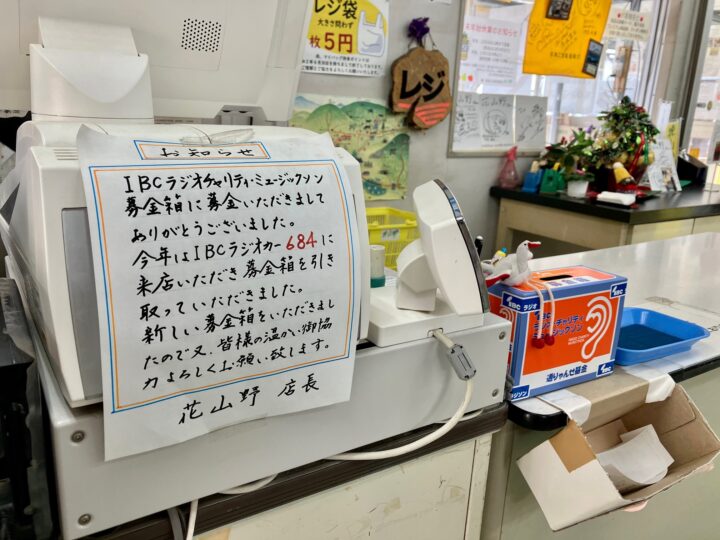 レジ袋
大きさ問わず
枚5円
レジ
お知らせ
IBCラジオチャリティ・ミュージックソン
募金箱に募金いただきまして
ありがとうございました。
今年はIBCラジオカー684に
来店いただき募金箱を引き
取っていただきました。
新しい募金箱をいただきまし
たので又、皆様の温かい御協
力よろしくお願い致します。
花山野 店長
IBC ラジオ
IBC
ラジオ・チャリティ
ミュージックソン
通りゃんせ基金
IBC